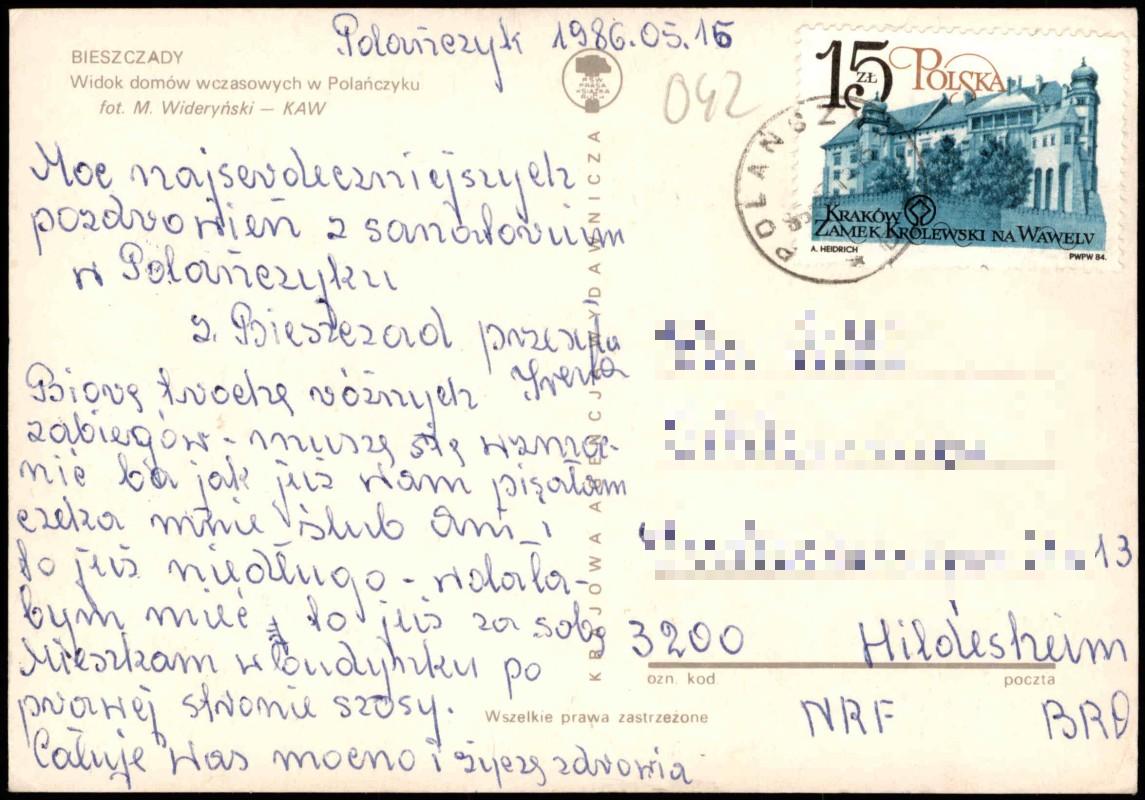 BIESZCZADY
Widok domów wczasowych w Polańczyku
fot. M. Wideryński — KAW
Polańczyk 1986.05.16
042
15 ZŁ POLSKA
KRAKÓW
ZAMEK KRÓLEWSKI NA WAWELU
A. HEIDRICH
PWPW 84.
RSW
PRASA
KSIĄŻKA
RUCH
KRAJOWA AGENCJA WYDAWNICZA
Moc najserdeczniejszych
pozdrowień z sanatorium
w Polańczyku
z Bieszczad przesyła
Irena
Biorę trochę różnych
zabiegów - muszę się wzmoc-
nić bo jak już wam pisałam
czeka mnie ślub Ani i
to już niedługo - wolała-
bym mieć to już za sobą
Mieszkam w budynku po
prawej stronie szosy.
Całuję was mocno i życzę zdrowia
13
3200 Hildesheim
ozn. kod poczta
NRF BRD
Wszelkie prawa zastrzeżone